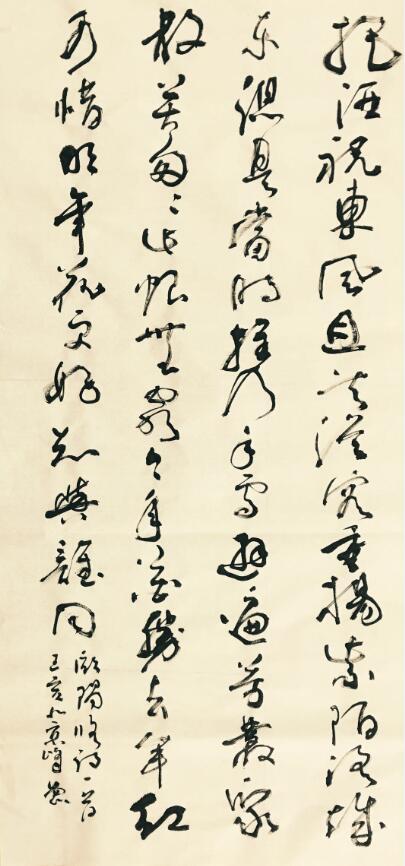 把酒祝東風且共從容垂楊紫陌洛城
东總是當時携手處遊遍芳叢聚
散苦匆〻此恨無窮今年花勝去年红
可惜明年花更好知與誰同
歐陽修詩一首
己亥北京峰